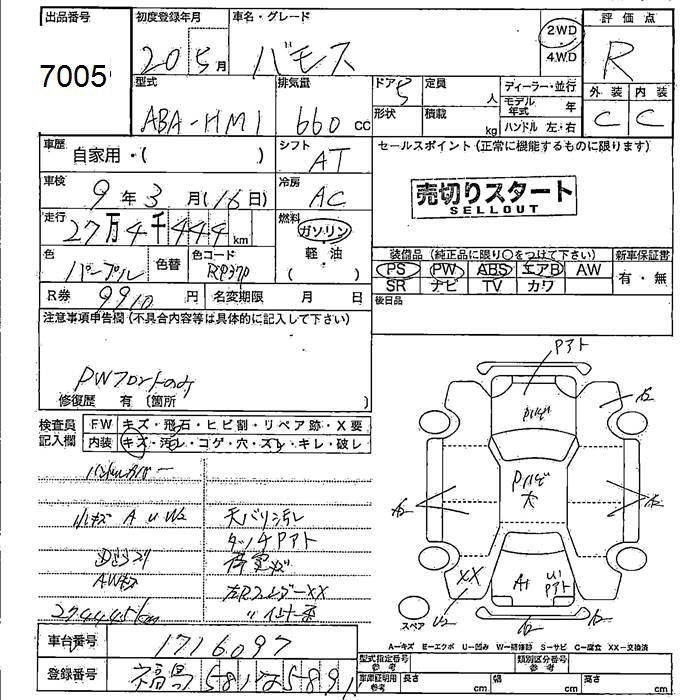 出品番号
7005
初度登録年月
20 5月
車名・グレード
バモス
2WD
4.WD
評価点
R
外装 内装
C C
型式
ABA-HM1
排気量
660 cc
ドア 5
定員 人
形状
積載 kg
ディーラー・並行
モデル年式 年
ハンドル 左・右
車歴
自家用・( )
シフト
AT
セールスポイント(正常に機能するものに限ります)
売切りスタート
SELLOUT
車検
9年3月(16日)
冷房
AC
走行
27万4千444km
燃料
ガソリン
軽・油
( )
色
パープル
色替
色コード
RP37P
装備品(純正品に限り○をつけて下さい)
PS PW ABS エアB AW
SR ナビ TV カワ
新車保証書
有・無
R券 9910円
名変期限 月 日
後日品
注意事項申告欄(不具合内容等は具体的に記入して下さい)
PWフロントのみ
修復歴 有〔箇所 〕
検査員記入欄
FW キズ・飛石・ヒビ割・リペア跡・X要
内装 キズ・汚レ・コゲ・穴・ズレ・キレ・破レ
小キズ A U W2
天バリ汚レ
タッチPアト
AWキズ
274445km
Pアト
Pハゲ
Pハゲ大
A2
XX
U2
A1
U1
Pアト
スペア
A=キズ E=エクボ U=凹み W=補修跡 S=サビ C=腐食 XX=交換済
車台番号
1716097
登録番号
福島581
型式指定番号
参考
類別区分番号
参考
車庫証明用
参考
長さ cm
幅 cm
高さ cm